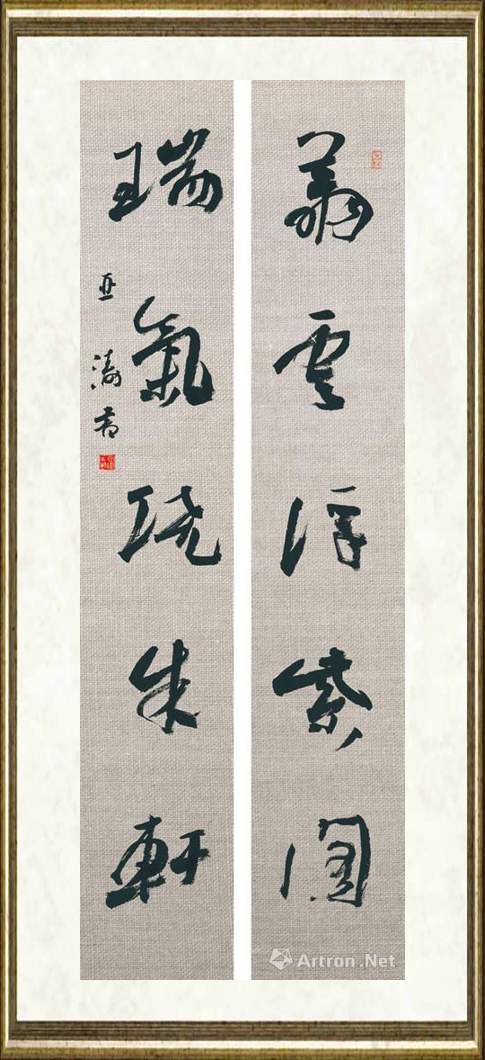 雲浮紫閣
瑞氣繞朱軒
亚濤書
Artron.Net